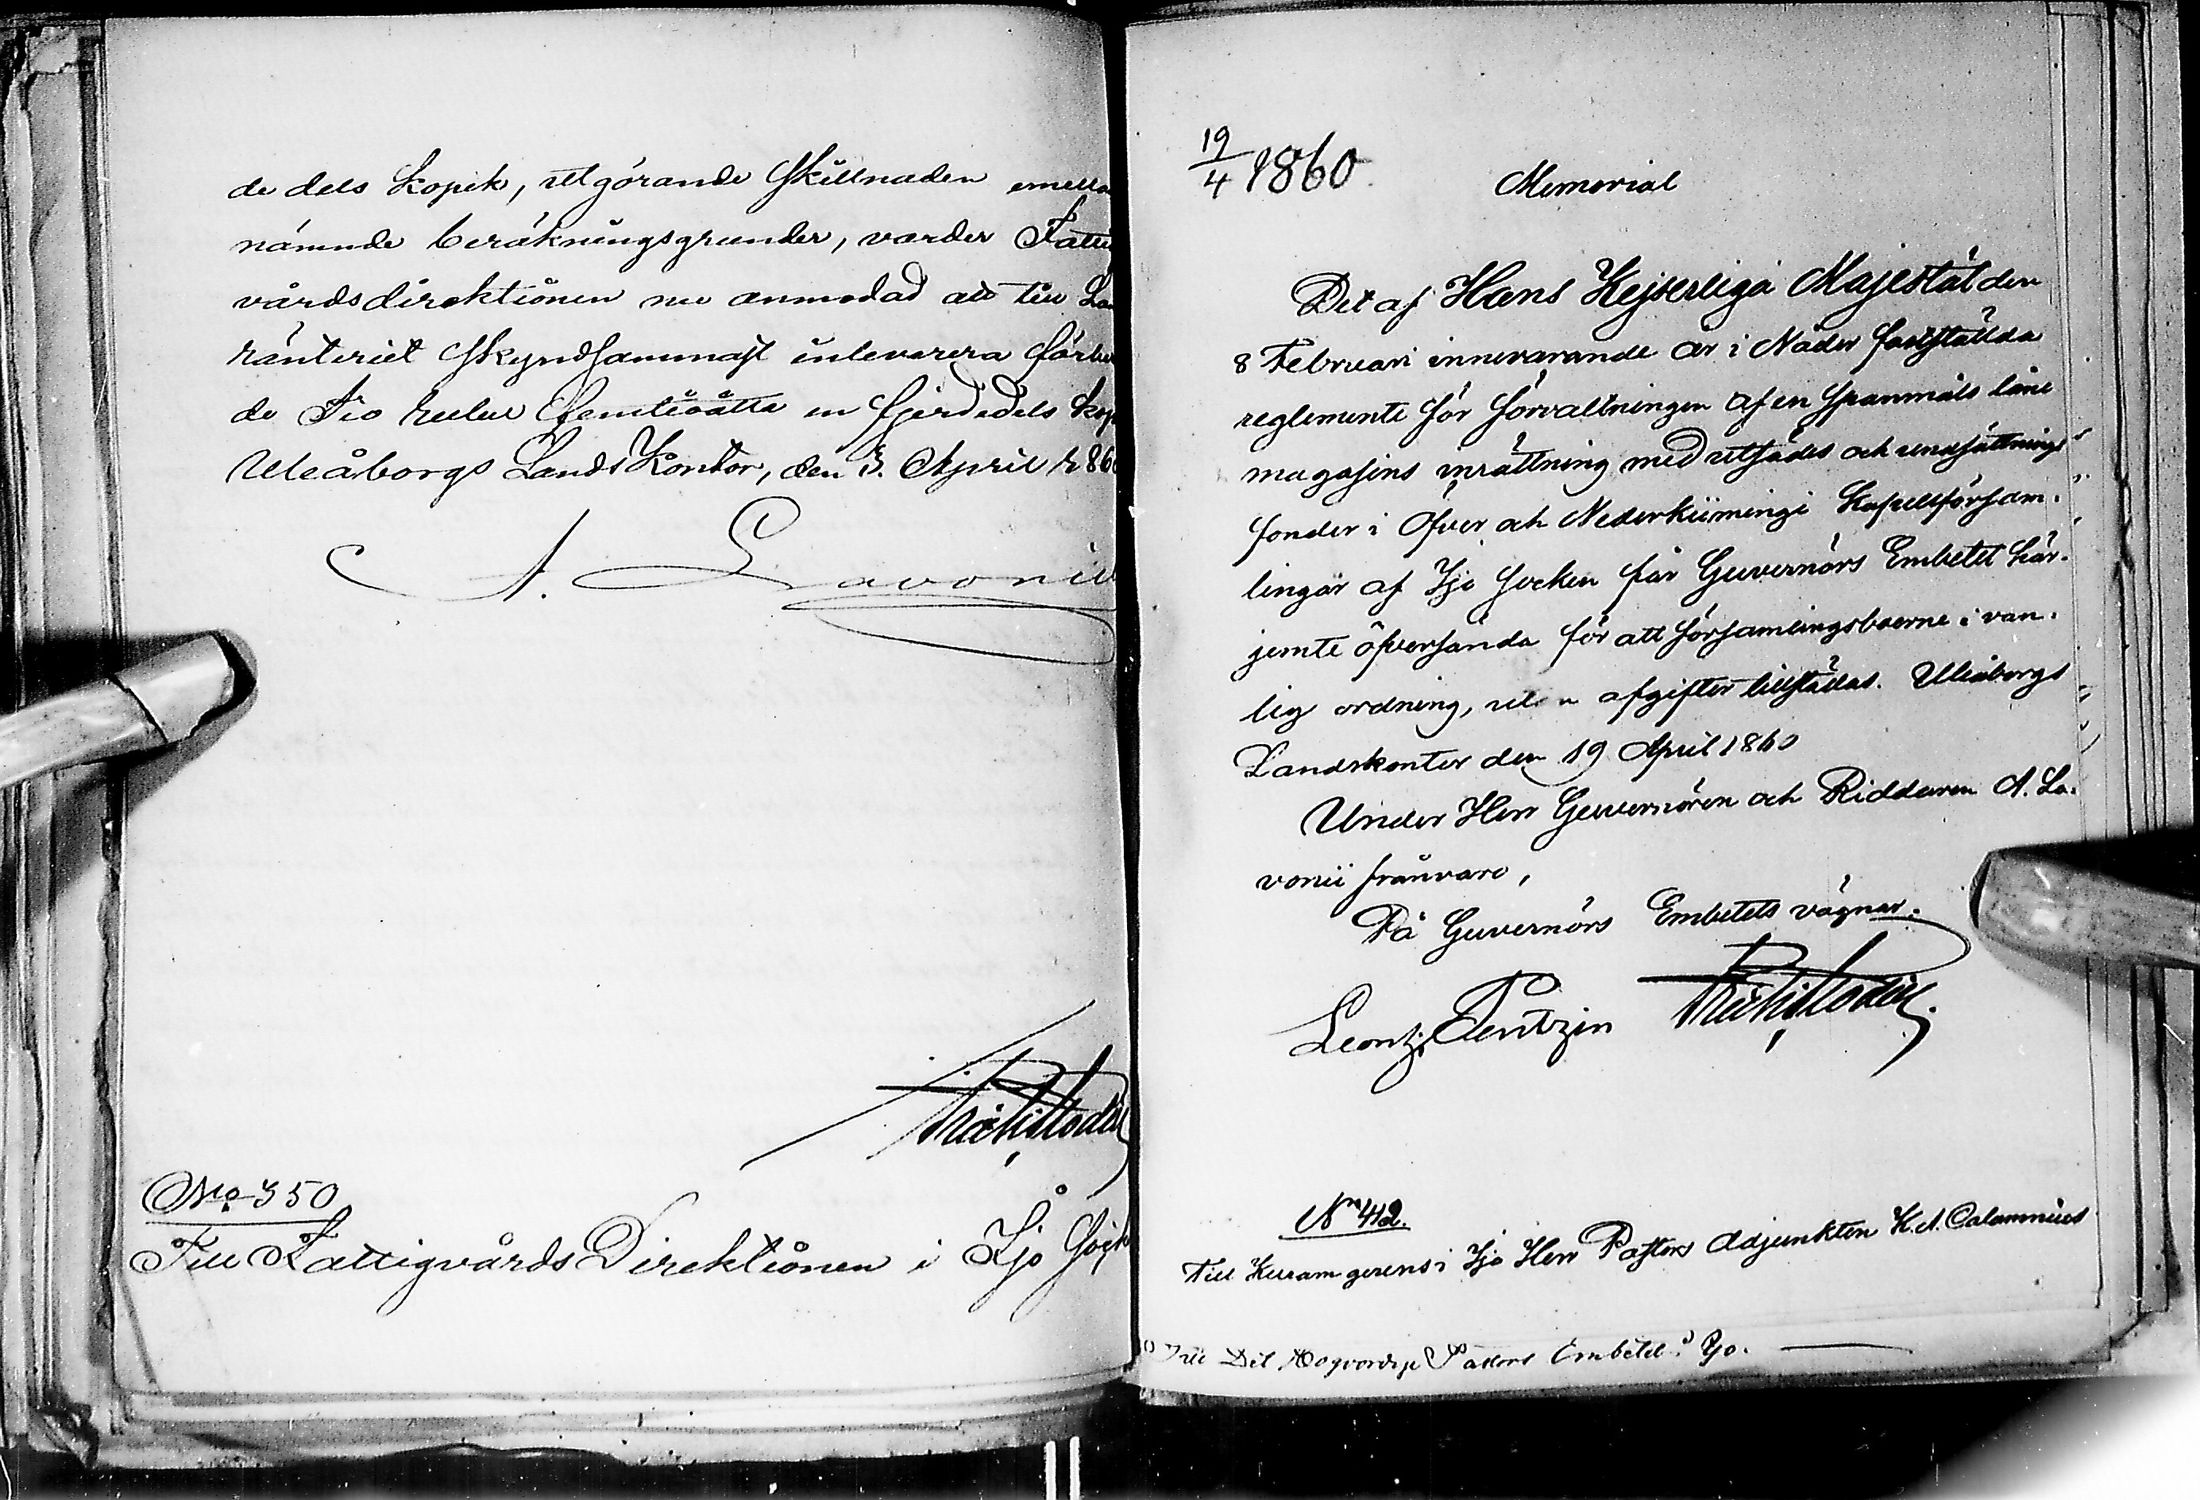 de dels Kopek, utgörande Skillnaden emella
nämnde beräkningsgrunder, varder Fattig
vårdsdirektionen nu anmodad att till La
ränteriet Skyndsammast inleverera förbe
de Tio rubel femtioåtta en fjerdedels kop
Uleåborgs Lands Kontor, den 3. April 186
A. Lavoniu
No 350
Till Fattigvårds Direktionen i Ijo Sock
19/4 1860
Memorial
Det af Hans Kejserliga Majestät den
8 Februari innevarande år i Nåder fastställda
reglemente för förvaltningen af en Spanmåls låne
magasins inrättning med utsädes och undsättnings
fonder i Öfver och Nederkiimingi Kapellförsam-
lingar af Ijo Socken får Guvernörs Embetet här-
jemte öfversända för att församlingsboerne i van-
lig ordning, utan afgifter tillställas. Uleåborgs
Landskontor den 19 April 1860
Under Herr Guvernören och Riddaren A. La-
vonii frånvaro,
På Guvernörs Embetets vägnar.
Leont. Pentzin
No 412.
Till Kuram gerens i Ijo Herr Pastors Adjunkten K. A. Calamnius
Till Det Högvördige Pastors Embetet i Ijo.